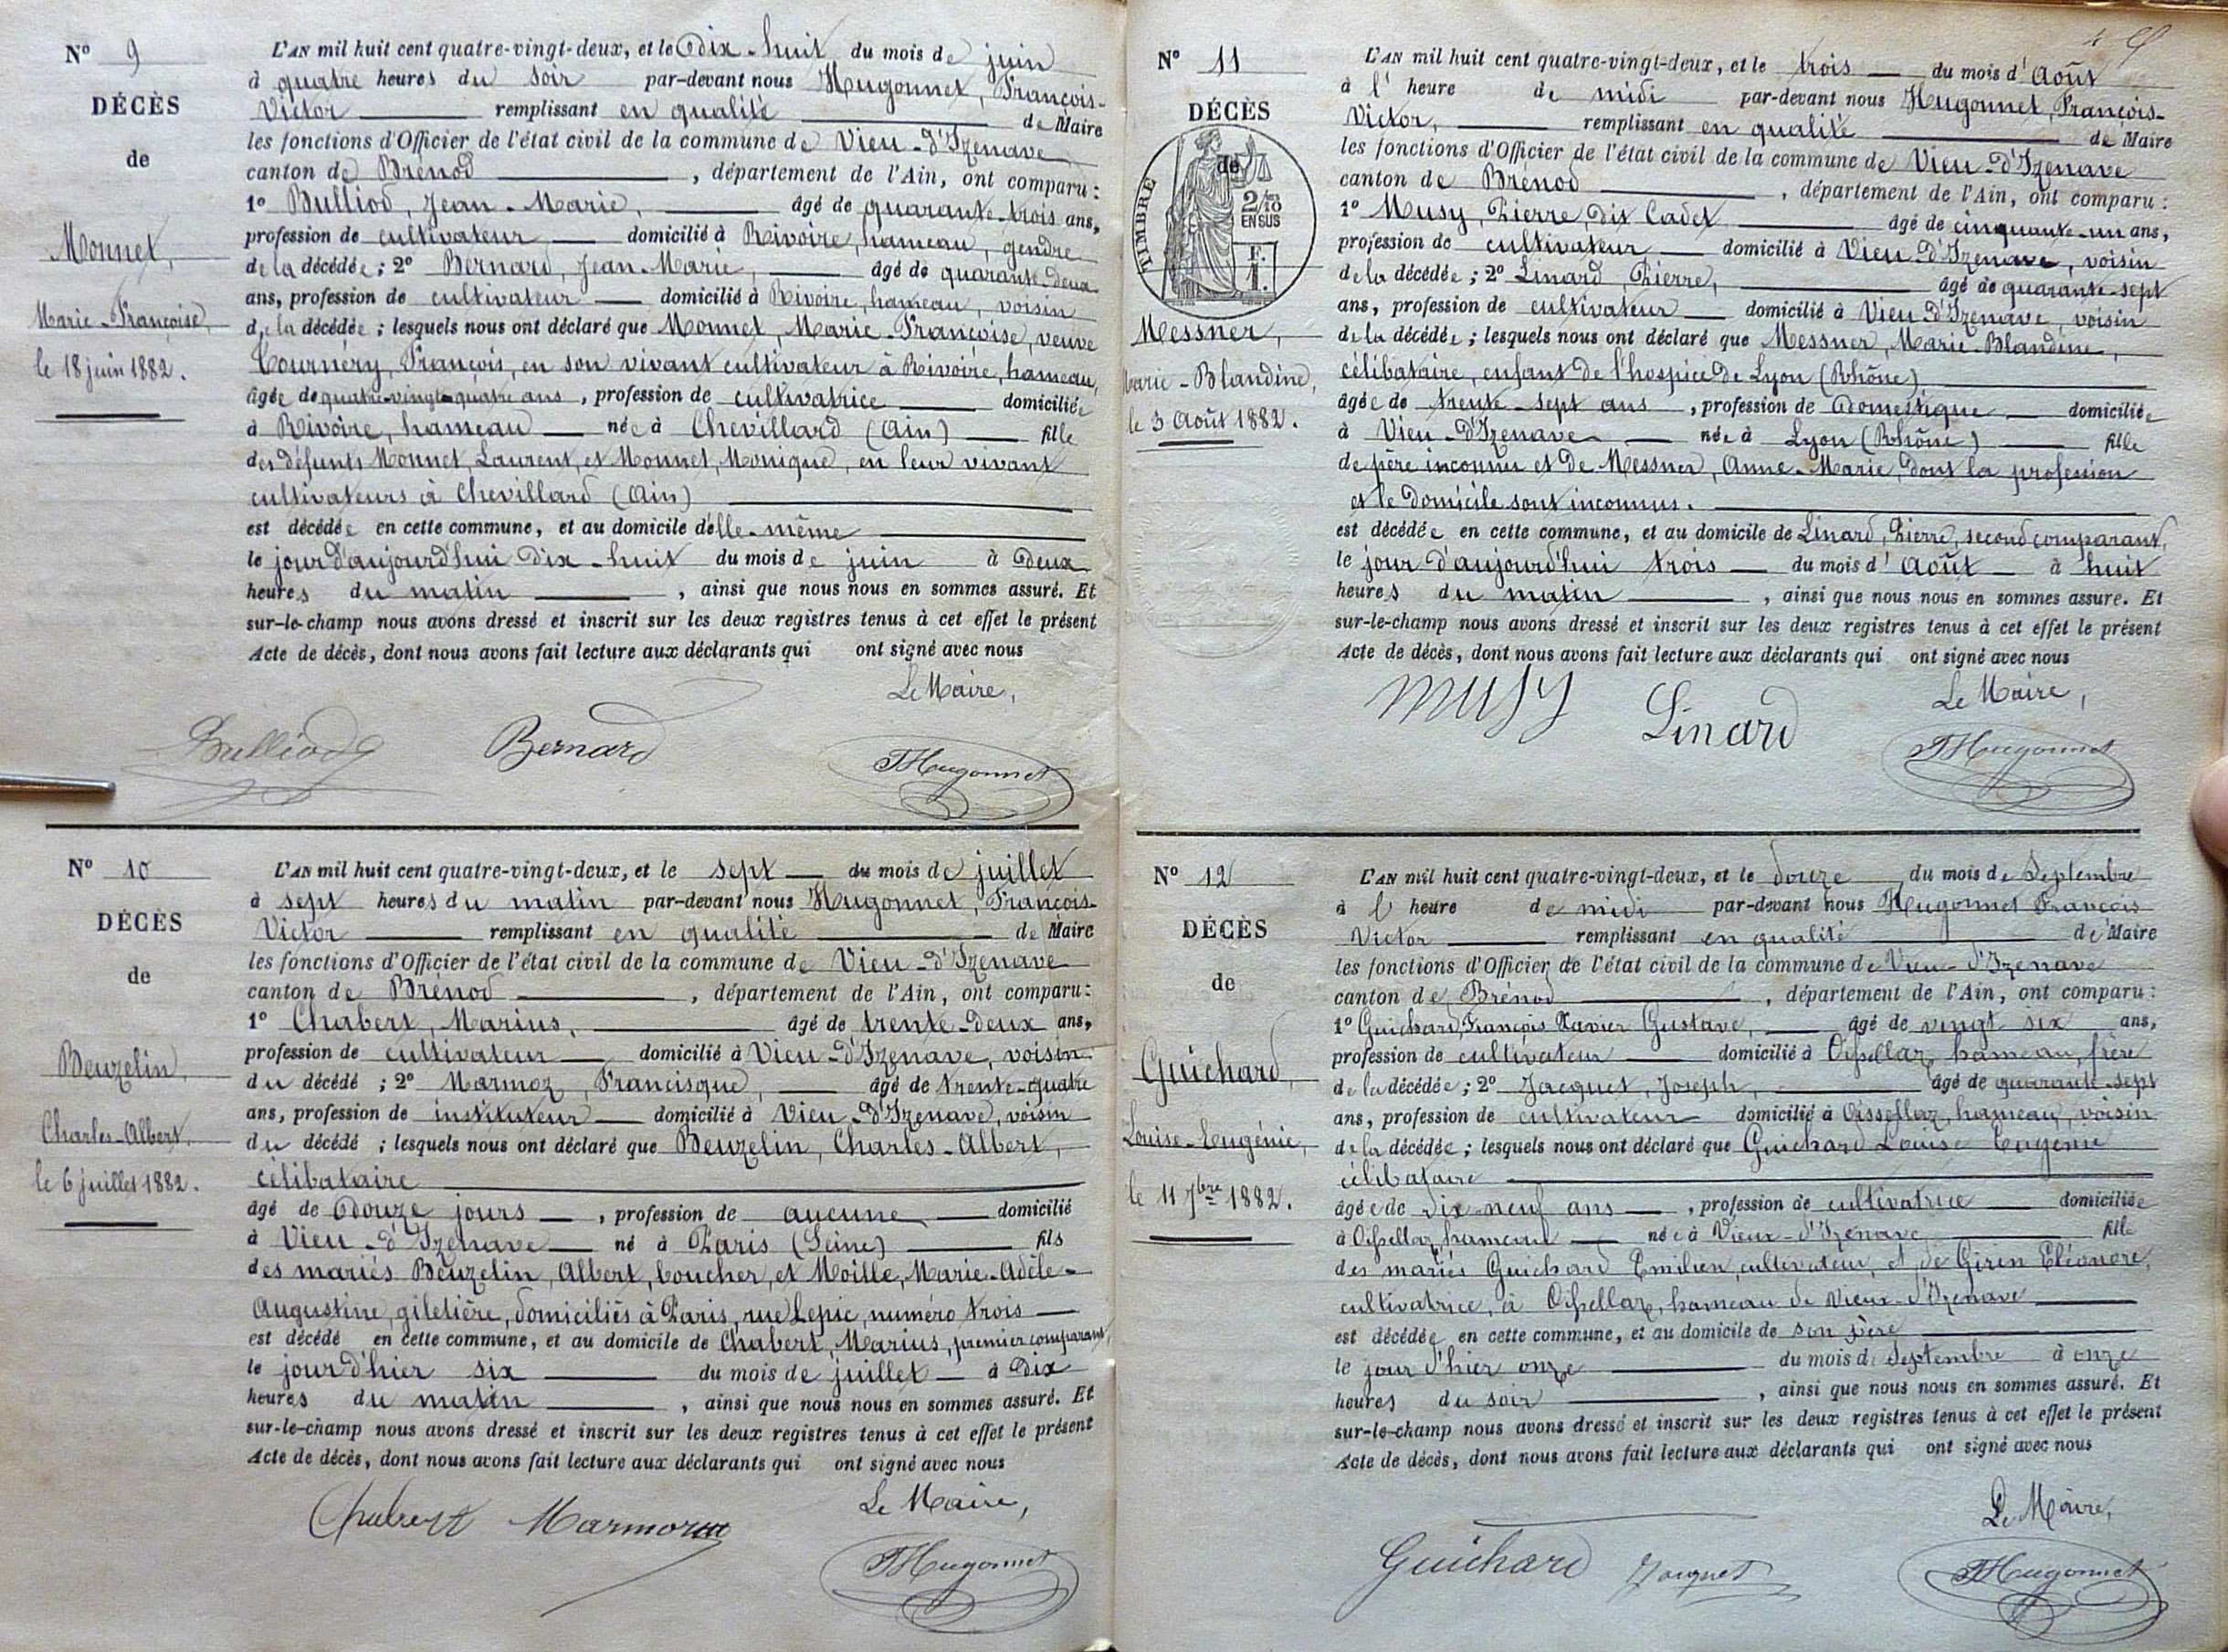 N° 9
DÉCÈS
de
Monnet,
Marie-Françoise,
le 18 juin 1882.
L'AN mil huit cent quatre-vingt-deux, et le dix-huit du mois de juin
à quatre heures du soir par-devant nous Hugonnet, François-
Victor remplissant en qualité de Maire
les fonctions d'Officier de l'état civil de la commune de Vieu-d'Izenave
canton de Brénod, département de l'Ain, ont comparu :
1° Bulliod, Jean-Marie, âgé de quarante-trois ans,
profession de cultivateur domicilié à Rivoire, hameau, gendre
de la décédée ; 2° Bernard, Jean-Marie, âgé de quarante-deux
ans, profession de cultivateur domicilié à Rivoire, hameau, voisin
de la décédée ; lesquels nous ont déclaré que Monnet, Marie-Françoise, veuve
Tournéry, François, en son vivant cultivateur à Rivoire, hameau,
âgée de quatre-vingt-quatre ans, profession de cultivatrice domiciliée
à Rivoire, hameau née à Chevillard (Ain) fille
des défunts Monnet, Laurent, et Monnet, Monique, en leur vivant
cultivateurs à Chevillard (Ain)
est décédée en cette commune, et au domicile d'elle-même
le jour d'aujourd'hui dix-huit du mois de juin à deux
heures du matin, ainsi que nous nous en sommes assuré. Et
sur-le-champ nous avons dressé et inscrit sur les deux registres tenus à cet effet le présent
Acte de décès, dont nous avons fait lecture aux déclarants qui ont signé avec nous
Le Maire,
Bulliod Bernard Hugonnet
N° 10
DÉCÈS
de
Beuzelin,
Charles-Albert,
le 6 juillet 1882.
L'AN mil huit cent quatre-vingt-deux, et le sept du mois de juillet
à sept heures du matin par-devant nous Hugonnet, François-
Victor remplissant en qualité de Maire
les fonctions d'Officier de l'état civil de la commune de Vieu-d'Izenave
canton de Brénod, département de l'Ain, ont comparu :
1° Chabert, Marius, âgé de trente-deux ans,
profession de cultivateur domicilié à Vieu-d'Izenave, voisin
du décédé ; 2° Marmoz, Francisque, âgé de trente-quatre
ans, profession de instituteur domicilié à Vieu-d'Izenave, voisin
du décédé ; lesquels nous ont déclaré que Beuzelin, Charles-Albert,
célibataire
âgé de douze jours, profession de aucune domicilié
à Vieu-d'Izenave né à Paris (Seine) fils
des mariés Beuzelin, Albert, boucher, et Moille, Marie-Adèle-
Augustine, giletière, domiciliés à Paris, rue Lepic, numéro trois
est décédé en cette commune, et au domicile de Chabert, Marius, premier comparant,
le jour d'hier six du mois de juillet à dix
heures du matin, ainsi que nous nous en sommes assuré. Et
sur-le-champ nous avons dressé et inscrit sur les deux registres tenus à cet effet le présent
Acte de décès, dont nous avons fait lecture aux déclarants qui ont signé avec nous
Le Maire,
Chabert Marmoz Hugonnet
N° 11
DÉCÈS
de
TIMBRE
2/10
EN SUS
F.
1.
Messner,
Marie-Blandine,
le 3 Août 1882.
L'AN mil huit cent quatre-vingt-deux, et le trois du mois d'Août
à l'heure de midi par-devant nous Hugonnet, François-
Victor, remplissant en qualité de Maire
les fonctions d'Officier de l'état civil de la commune de Vieu-d'Izenave
canton de Brénod, département de l'Ain, ont comparu :
1° Musy, Pierre, dit Cadet âgé de cinquante-un ans,
profession de cultivateur domicilié à Vieu-d'Izenave, voisin
de la décédée ; 2° Linard, Pierre, âgé de quarante-sept
ans, profession de cultivateur domicilié à Vieu-d'Izenave, voisin
de la décédée ; lesquels nous ont déclaré que Messner, Marie-Blandine,
célibataire, enfant de l'hospice de Lyon (Rhône)
âgée de trente-sept ans, profession de domestique domiciliée
à Vieu-d'Izenave née à Lyon (Rhône) fille
de père inconnu et de Messner, Anne-Marie, dont la profession
et le domicile sont inconnus.
est décédée en cette commune, et au domicile de Linard, Pierre, second comparant,
le jour d'aujourd'hui trois du mois d'Août à huit
heures du matin, ainsi que nous nous en sommes assuré. Et
sur-le-champ nous avons dressé et inscrit sur les deux registres tenus à cet effet le présent
Acte de décès, dont nous avons fait lecture aux déclarants qui ont signé avec nous
Le Maire,
Musy Linard Hugonnet
N° 12
DÉCÈS
de
Guichard,
Louise-Eugénie,
le 11 7bre 1882.
L'AN mil huit cent quatre-vingt-deux, et le douze du mois de Septembre
à l'heure de midi par-devant nous Hugonnet François
Victor remplissant en qualité de Maire
les fonctions d'Officier de l'état civil de la commune de Vieu-d'Izenave
canton de Brénod, département de l'Ain, ont comparu :
1° Guichard, François Xavier Gustave, âgé de vingt six ans,
profession de cultivateur domicilié à Oissellaz hameau, frère
de la décédée ; 2° Jacquet, Joseph, âgé de quarante-sept
ans, profession de cultivateur domicilié à Oissellaz, hameau, voisin
de la décédée ; lesquels nous ont déclaré que Guichard Louise Eugénie
célibataire
âgée de dix-neuf ans, profession de cultivatrice domiciliée
à Oissellaz hameau née à Vieux-d'Izenave fille
des mariés Guichard Emilien, cultivateur, et de Giren Eléonore,
cultivatrice, à Oissellaz, hameau de Vieux-d'Izenave
est décédée en cette commune, et au domicile de son père
le jour d'hier onze du mois de Septembre à onze
heures du soir, ainsi que nous nous en sommes assuré. Et
sur-le-champ nous avons dressé et inscrit sur les deux registres tenus à cet effet le présent
Acte de décès, dont nous avons fait lecture aux déclarants qui ont signé avec nous
Le Maire,
Guichard Jacquet Hugonnet